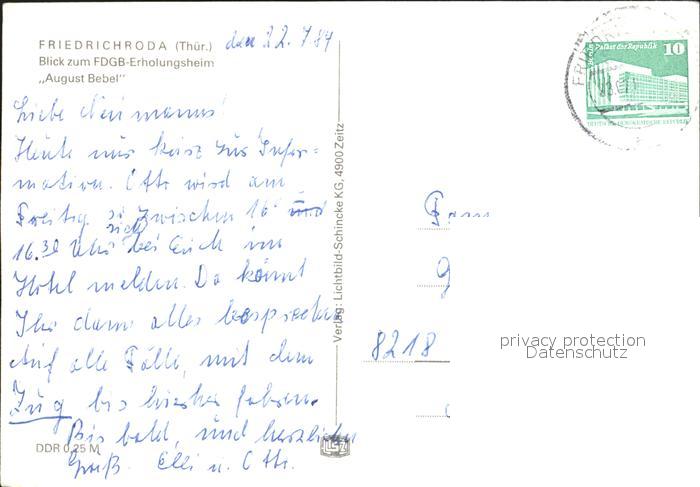 FRIEDRICHRODA (Thür.) den 22.7.84
Blick zum FDGB-Erholungsheim
„August Bebel"
Liebe Neumanns!
Heute nur kurz zur Infor=
mation. Otto wird am
Freitag zwischen 16 und
16.30 Uhr sich bei Euch im
Hotel melden. Da könnt
Ihr dann alles besprechen
Auf alle Fälle, mit dem
Zug bis hierher fahren.
Bis bald, und herzlichen
Gruß. Elli u. Otto.
DDR 0,25 M
Verlag: Lichtbild-Schincke KG, 4900 Zeitz
Palast der Republik 10
DEUTSCHE DEMOKRATISCHE REPUBLIK
Fam
8218
privacy protection
Datenschutz